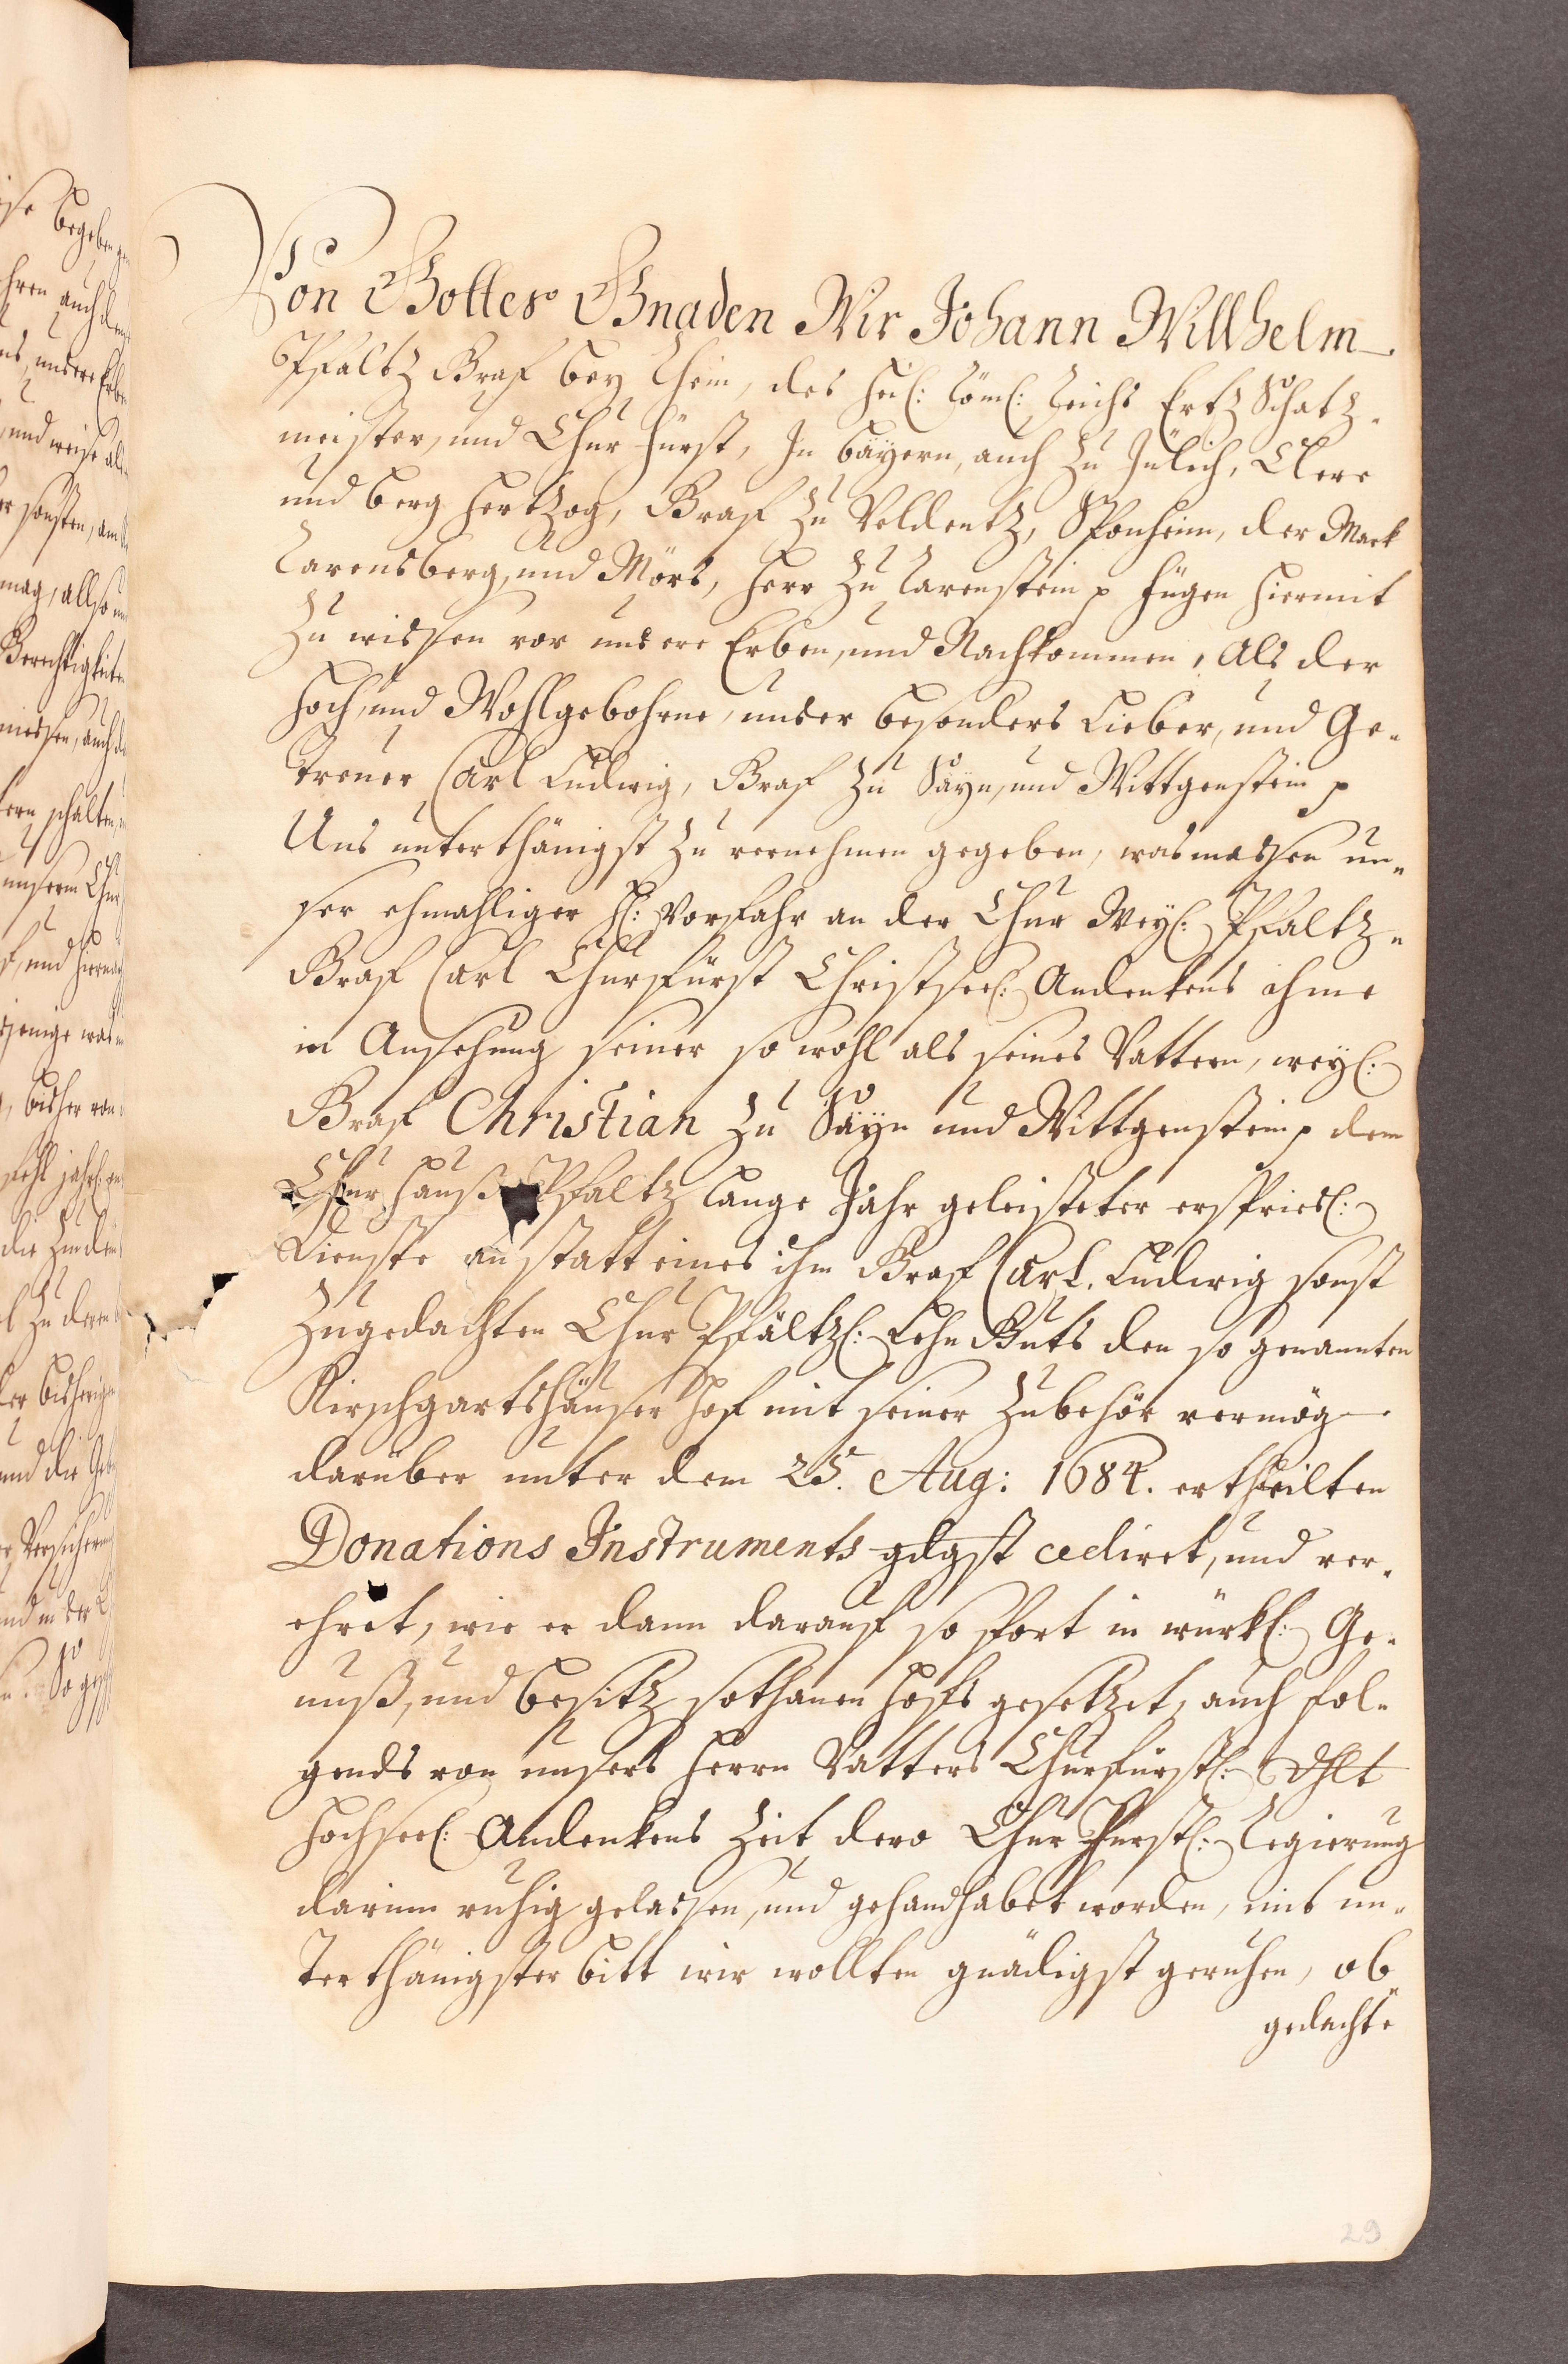 Von Gottes Gnaden Wir Johann Willhelm
Pfaltz Graf bey Rhein, des Heil: Röm: Reichs Ertz Schatz-
meister, und Chur Fürst, In Bäyern, auch zu Jülich, Cleve
und Berg Hertzog, Graf zu Veldentz, Sponheim, der Mark
Ravensberg, und Mörs, Herr zu Ravenstein p fügen hiermit
zu wissen vor unsere Erben, und Nachkommen, Als der
Hoch, und Wohlgebohrne, unser besonders Lieber, und Ge-
treuer Carl Ludwig, Graf zu Sayn, und Wittgenstein p
Uns unterthänigst zu vernehmen gegeben, wasmassen un-
ser ehmahliger H: Vorfahr an der Chur Weyl: Pfaltz-
Graf Carl Churfürst Christseel: Andenkens ihme
in Ansehung seiner so wohl als seines Vattern, weyl:
Graf Christian zu Sayn und Wittgenstein p dem
Chur Hauß Pfaltz lange Jahr geleisteter ersprießl:
Dienste an statt eines ihm Graf Carl Ludwig sonst
zugedachten Chur Pfältzl: Lehn Guts den so genannten
Kirschgartshäuser Hof mit seiner Zubehör vermög
darüber unter dem 25. Aug: 1684. ertheilten
Donations Instruments gdgst cediret, und ver-
ehret, wie er dann darauf so fort in würkl: Ge-
nuß, und Besitz sothanen Hofs gesetzet, auch fol-
gends von unsers Herrn Vatters Churfürstl: Dhlt
Hochseel: Andenkens Zeit dero Chur Fürstl: Regierung
darinn ruhig gelassen, und gehandhabet worden, mit un-
terthänigster Bitt wir wollten gnädigst geruhen, ob-
gedachte
29